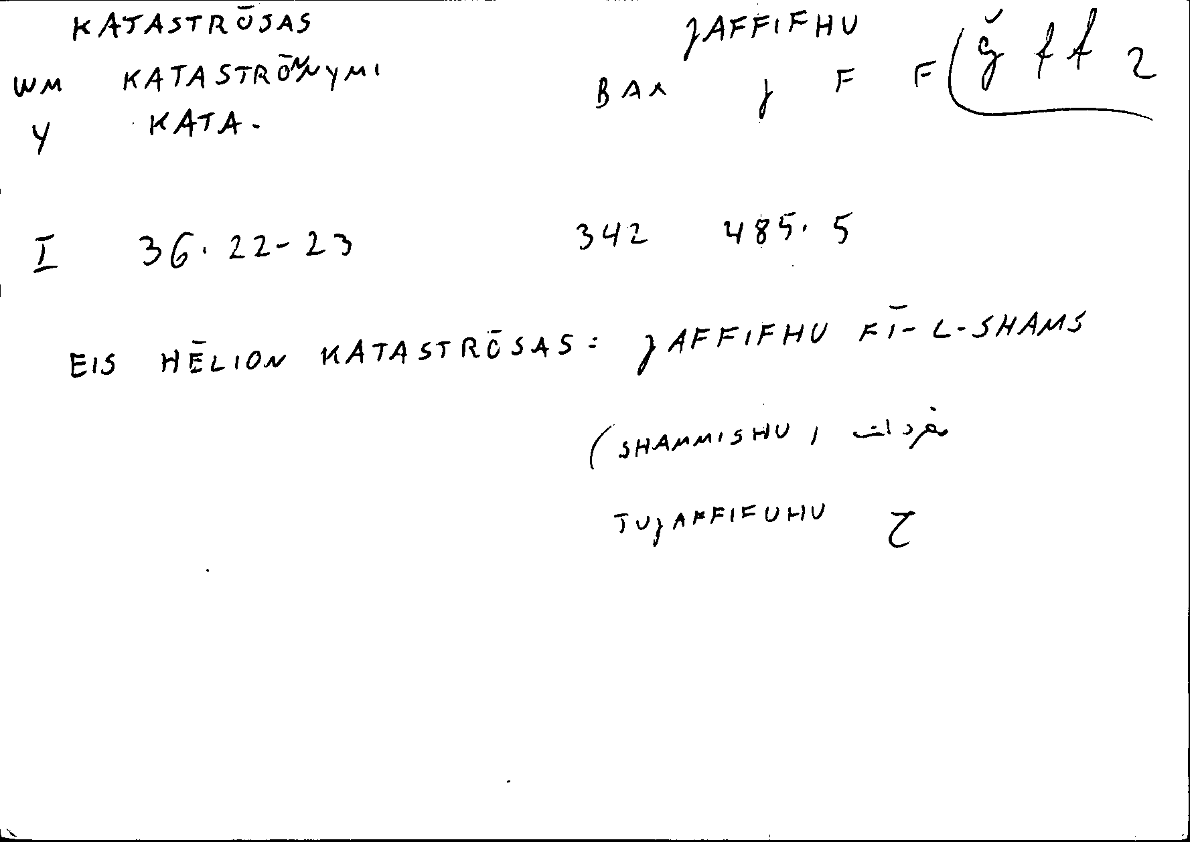 KATASTRŌSAS JAFFIFHU
WM KATASTRŌNNYMI BAA J F F ǧ f f 2
Y KATA.
I 36.22-23 342 485.5
EIS HĒLION KATASTRŌSAS: JAFFIFHU FĪ-L-SHAMS
(SHAMMISHU, مفردات
TUJAFFIFUHU ح